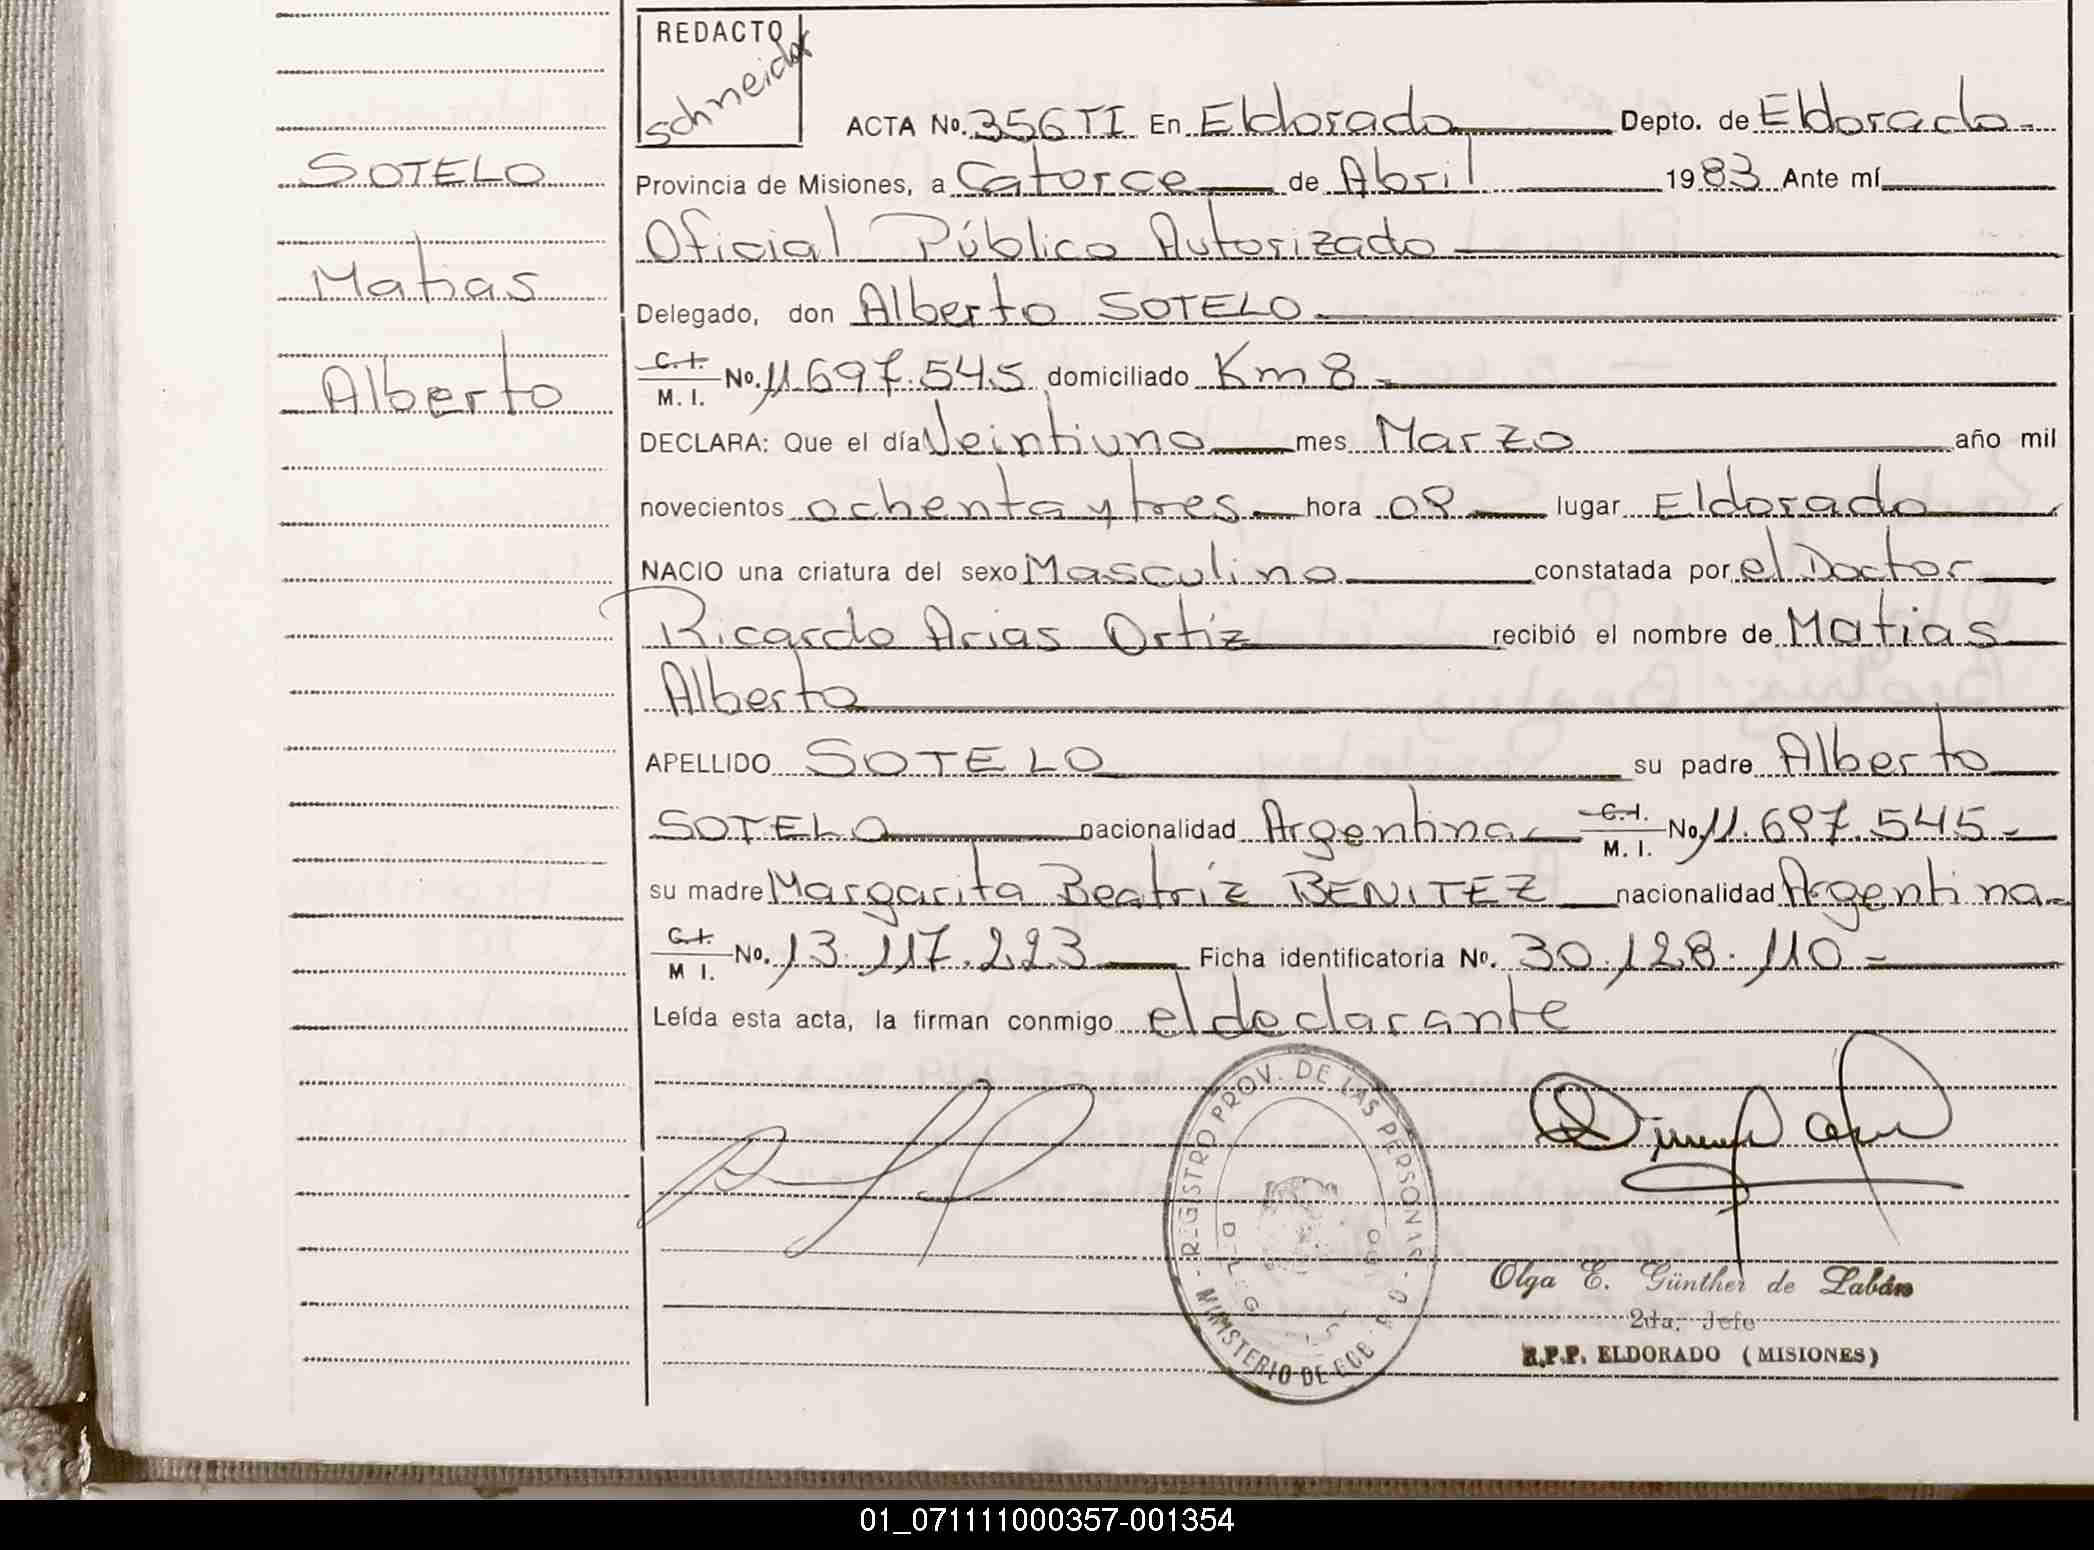 REDACTO
Schneider
ACTA No. 356 TI En Eldorado Depto. de Eldorado
SOTELO
Provincia de Misiones, a Catorce de Abril 1983 Ante mí
Oficial Público Autorizado
Matias
Delegado, don Alberto SOTELO
Alberto
C.I. M. I. No. 11.697.545 domiciliado Km 8
DECLARA: Que el día Veintiuno mes Marzo año mil
novecientos ochenta y tres hora 08 lugar Eldorado
NACIO una criatura del sexo Masculino constatada por el Doctor
Ricardo Arias Ortíz recibió el nombre de Matias
Alberto
APELLIDO SOTELO su padre Alberto
SOTELO nacionalidad Argentina C.I. M. I. No 11.697.545
su madre Margarita Beatríz BENITEZ nacionalidad Argentina
C.I. M I. No. 13.117.223 Ficha identificatoria No. 30.128.110
Leída esta acta, la firman conmigo el declarante
REGISTRO PROV. DE LAS PERSONAS
MINISTERIO DE
Olga E. Günther de Labán
2da. Jefe
R.P.P. ELDORADO (MISIONES)
01_071111000357-001354